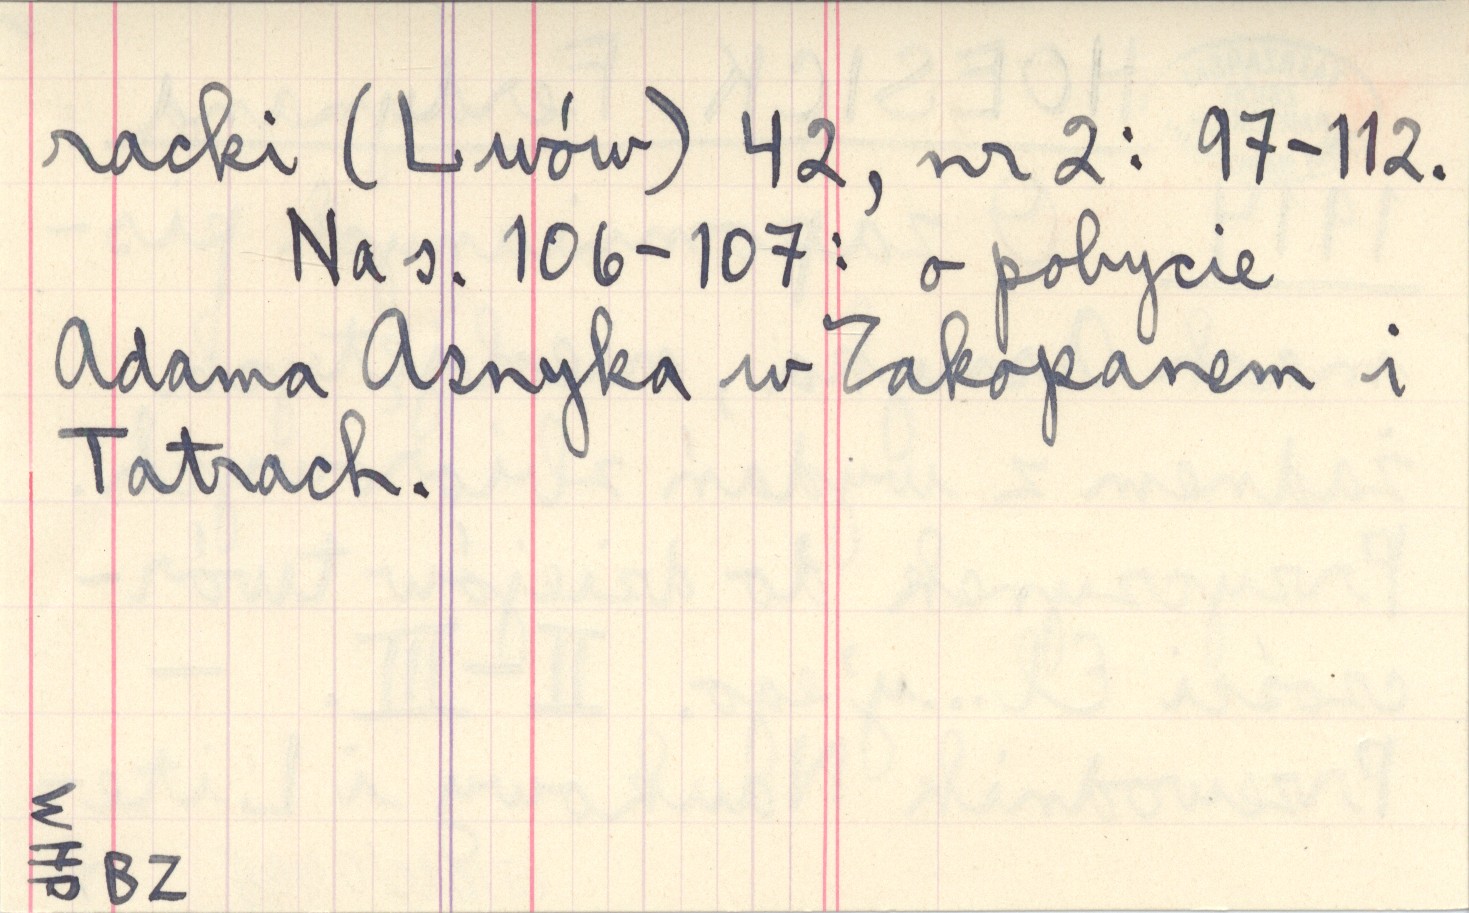 racki (Lwów) 42, nr 2: 97-112.
Na s. 106-107: o pobycie
Adama Asnyka w Zakopanem i
Tatrach.
WHP
BZ